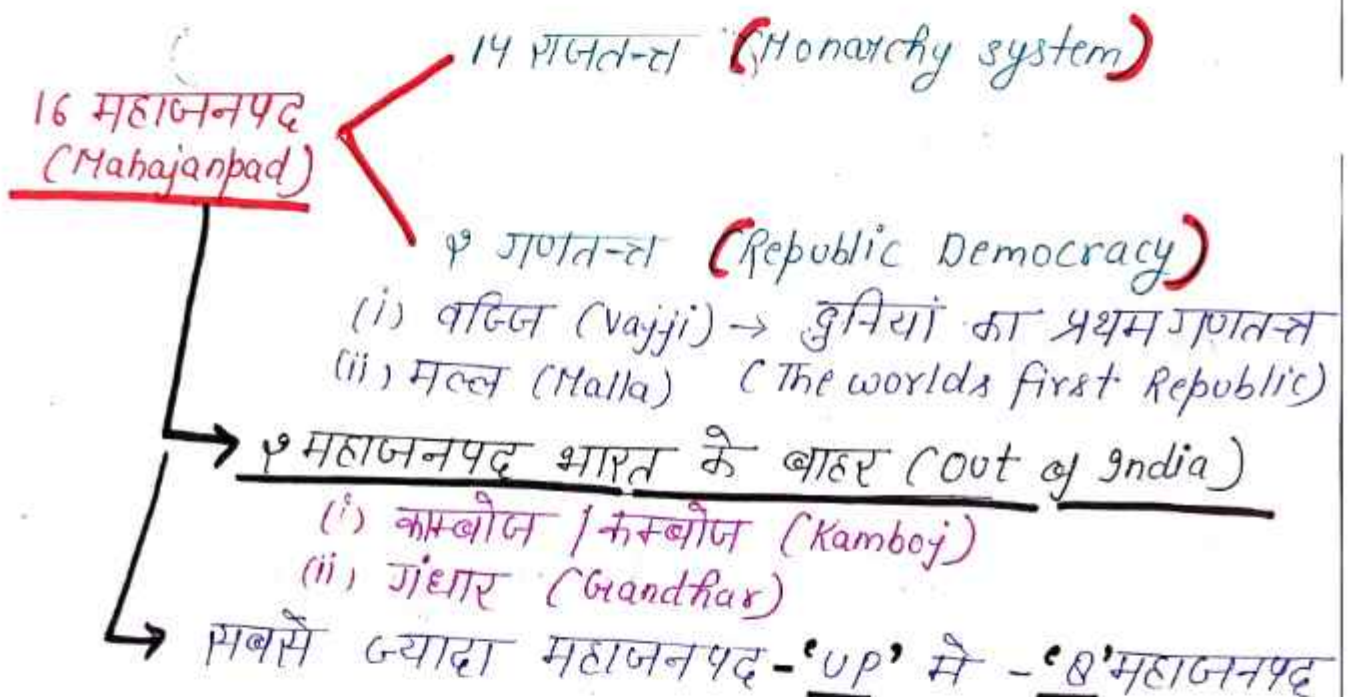 14 राजतन्त्र (Monarchy system)
16 महाजनपद
(Mahajanpad)
२ गणतन्त्र (Republic Democracy)
(i) वज्जि (Vajji) → दुनियां का प्रथम गणतन्त्र
(ii) मल्ल (Malla) (The worlds first Republic)
२ महाजनपद भारत के बाहर (out of India)
(i) काम्बोज / कम्बोज (Kamboj)
(ii) गंधार (Gandhar)
सबसे ज्यादा महाजनपद - 'UP' मे - '8' महाजनपद